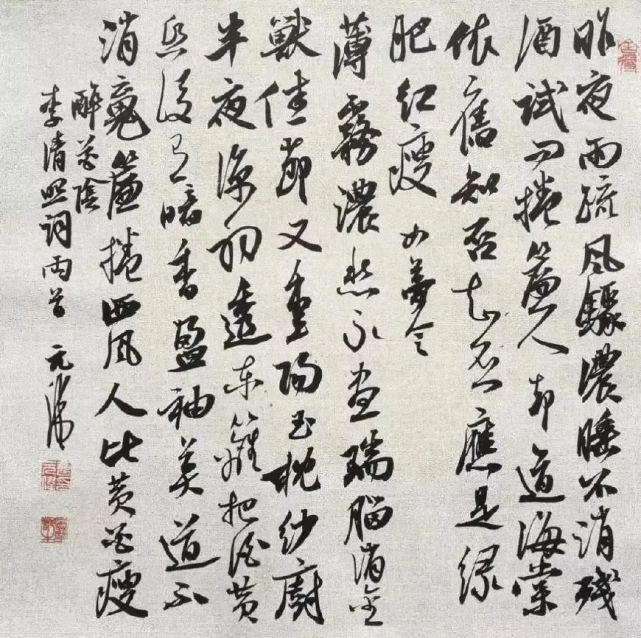 昨夜雨疏风骤濃睡不消残
酒试问捲簾人却道海棠
依舊知否知否應是绿
肥红瘦 如夢令
薄霧濃愁永昼瑞腦消金
獸佳節又重阳玉枕纱廚
半夜凉初透东籬把酒黄
昏後有暗香盈袖莫道不
消魂簾捲西风人比黄花瘦
醉花陰
李清照词两首 元